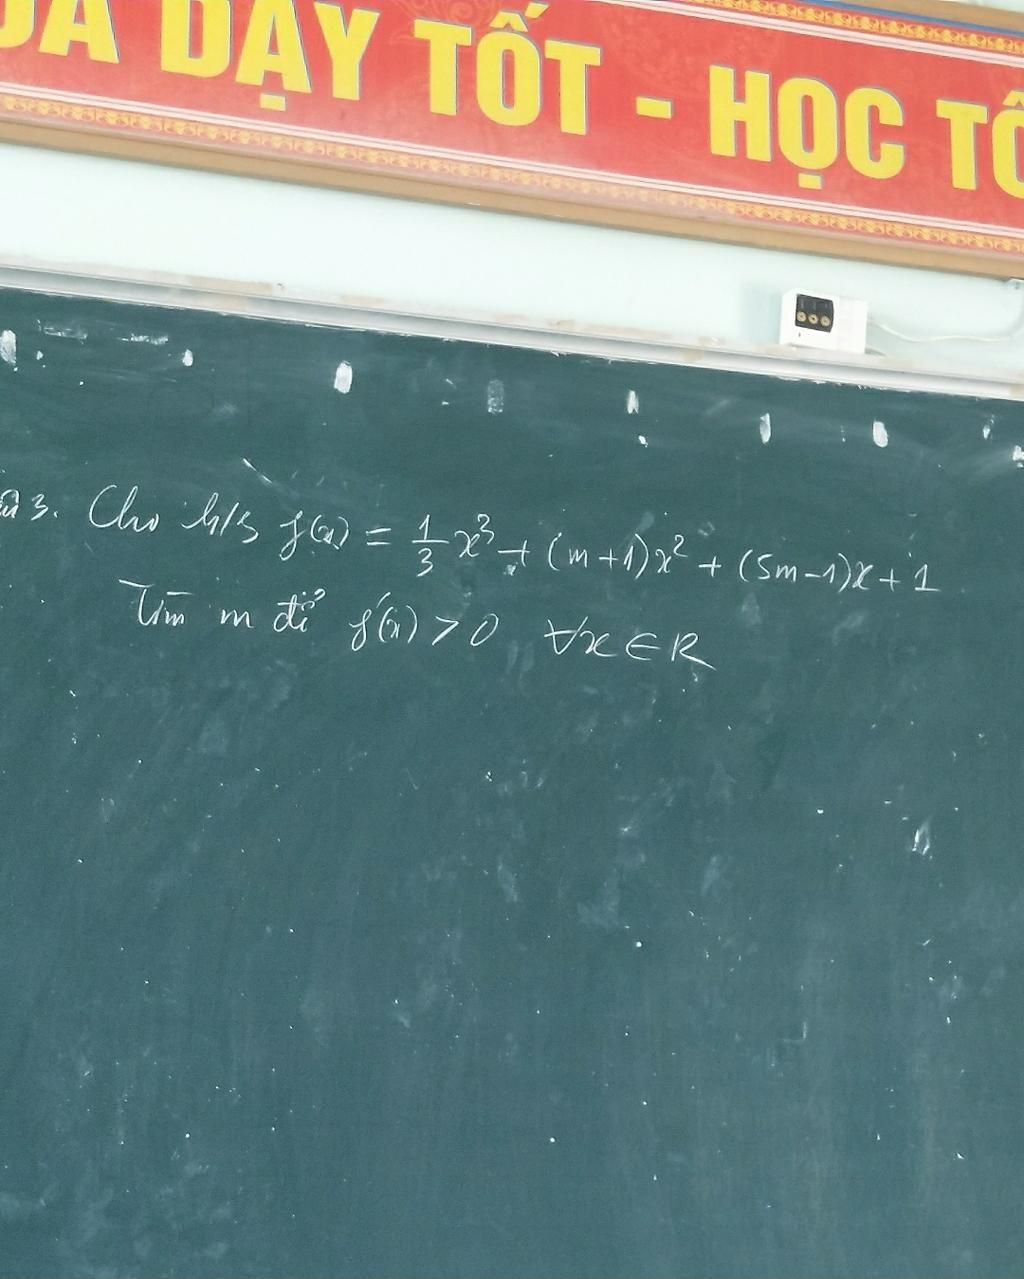 DẠY TỐT - HỌC
3. Cho h/s f(x) = 1/3 x³ + (m+1)x² + (5m-1)x + 1
Tìm m để f'(x) > 0 ∀x ∈ R